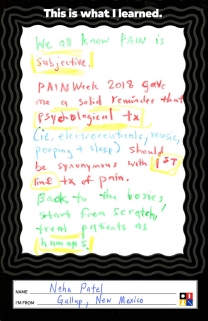 This is what I learned.
We all know PAIN is
subjective.
PAINWeek 2018 gave
me a solid reminder that
psychological tx
(i.e. electroceuticals, music,
peeping + sleep) should
be synonymous with 1ST
line tx of pain.
Back to the basics,
start from scratch,
treat patients as
humans.
NAME Neha Patel
I'M FROM Gallup, New Mexico